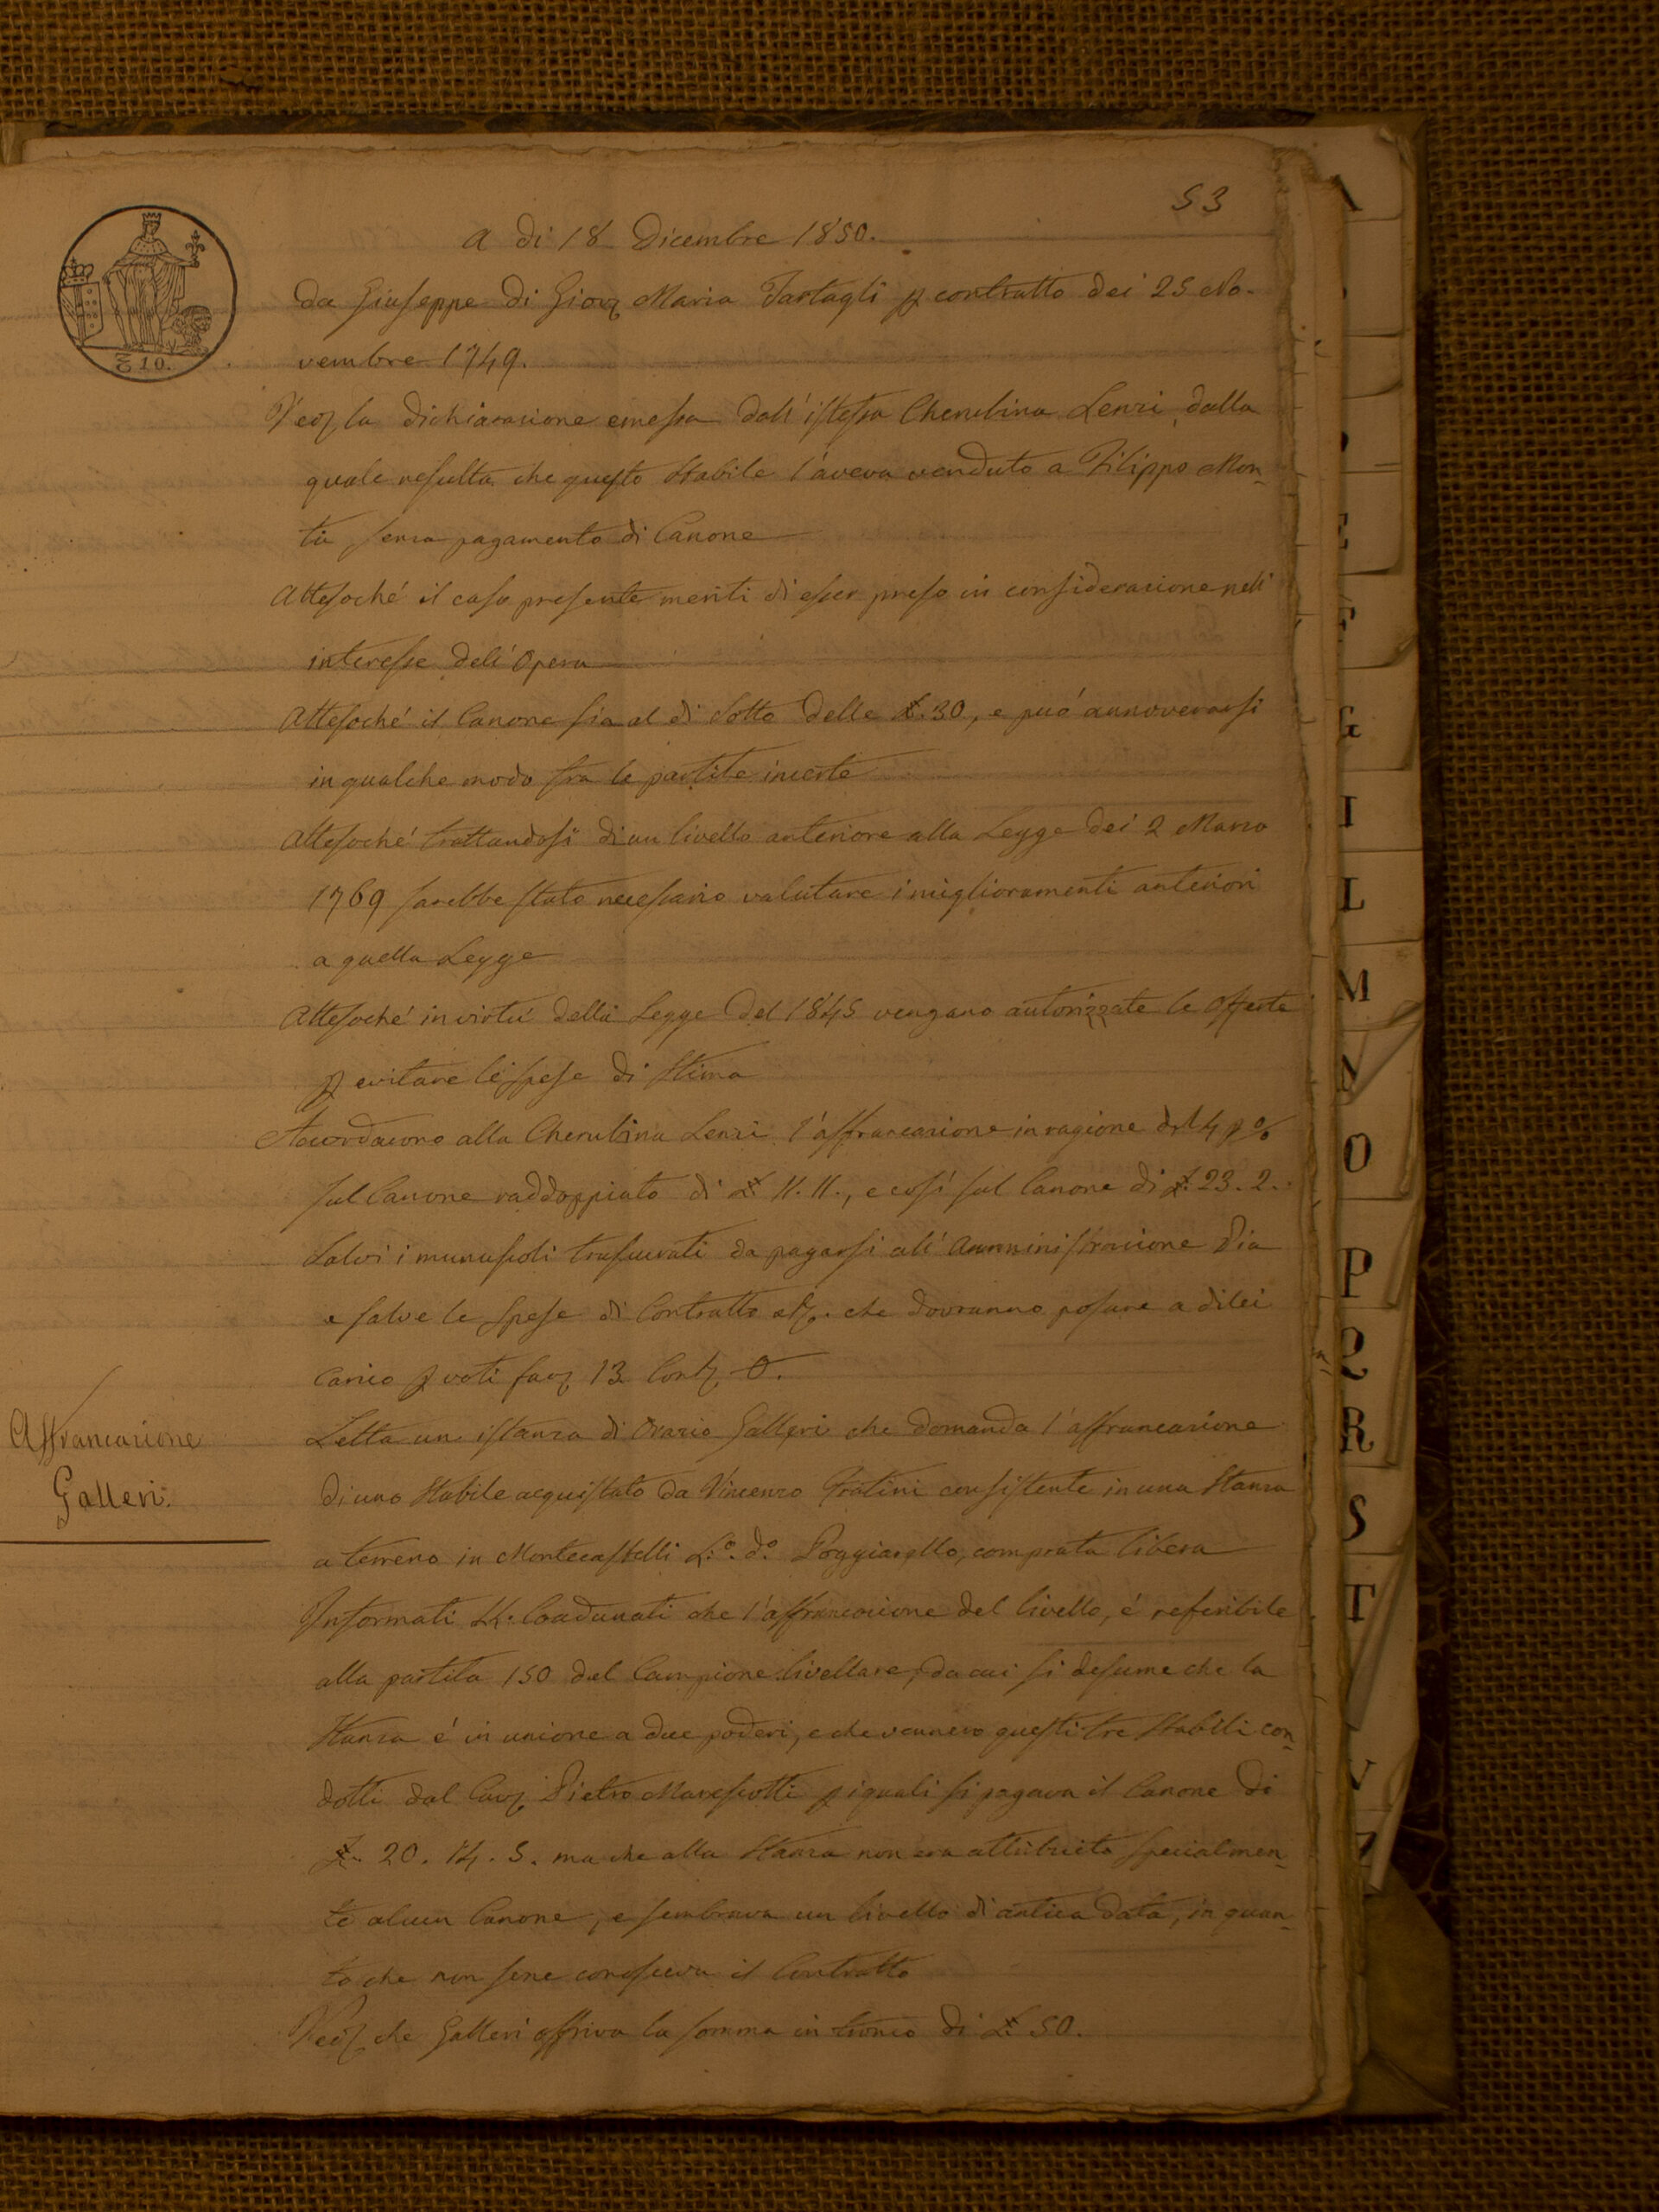 53
A di 18 Dicembre 1850.
da Giuseppe di Giov Maria Tartagli p contratto dei 25 No-
vembre 1749.
la dichiarazione emessa dall'istessa Cherubina Lenzi, dalla
quale resulta che questo Stabile l'aveva venduto a Filippo Mon-
ti senza pagamento di Canone
Attesoché il caso presente meriti di esser preso in considerazione nell'
interesse dell'Opera
Attesoché il Canone sia al di sotto delle £. 30, e può annoverarsi
in qualche modo fra le partite incerte
Attesoché trattandosi di un livello anteriore alla Legge dei 2 Marzo
1769 sarebbe stato necessario valutare i miglioramenti anteriori
a quella Legge
Attesoché in virtù della Legge del 1845 vengano autorizzate le offerte
p evitare le spese di Stima
Accordarono alla Cherubina Lenzi l'affrancazione in ragione del 4 p %
sul Canone raddoppiato di £ 11. 11., e così sul Canone di £. 23. 2.
Salvi i munuscoli trascurati da pagarsi all'Amministrazione Pia
e salve le spese di Contratto che dovranno posare a di lei
carico p voti fav 13 Cont 0.
Affrancazione
Galleri.
Letta un istanza di Orazio Galleri che domanda l'affrancazione
di uno Stabile acquistato da Vincenzo Fratini consistente in una Stanza
a terreno in Montecastelli L.º d.º Poggiarello, comprata libera
Informati Coadunati che l'affrancazione del livello, é referibile
alla partita 150 del Campione livellare, da cui si desume che la
Stanza é in unione a due poderi, e che vennero questi tre Stabili con-
dotti dal Cav Pietro Marescotti p i quali si pagava il Canone di
£. 20. 14. 5. ma che alla Stanza non era attribuito specialmen-
te alcun Canone, e sembrava un livello di antica data, in quan-
to che non sene conosceva il Contratto
che Galleri offriva la somma in tronco di £ 50.
£ 10.
A
E
F
G
I
L
M
N
O
P
Q
R
S
T
V
Z